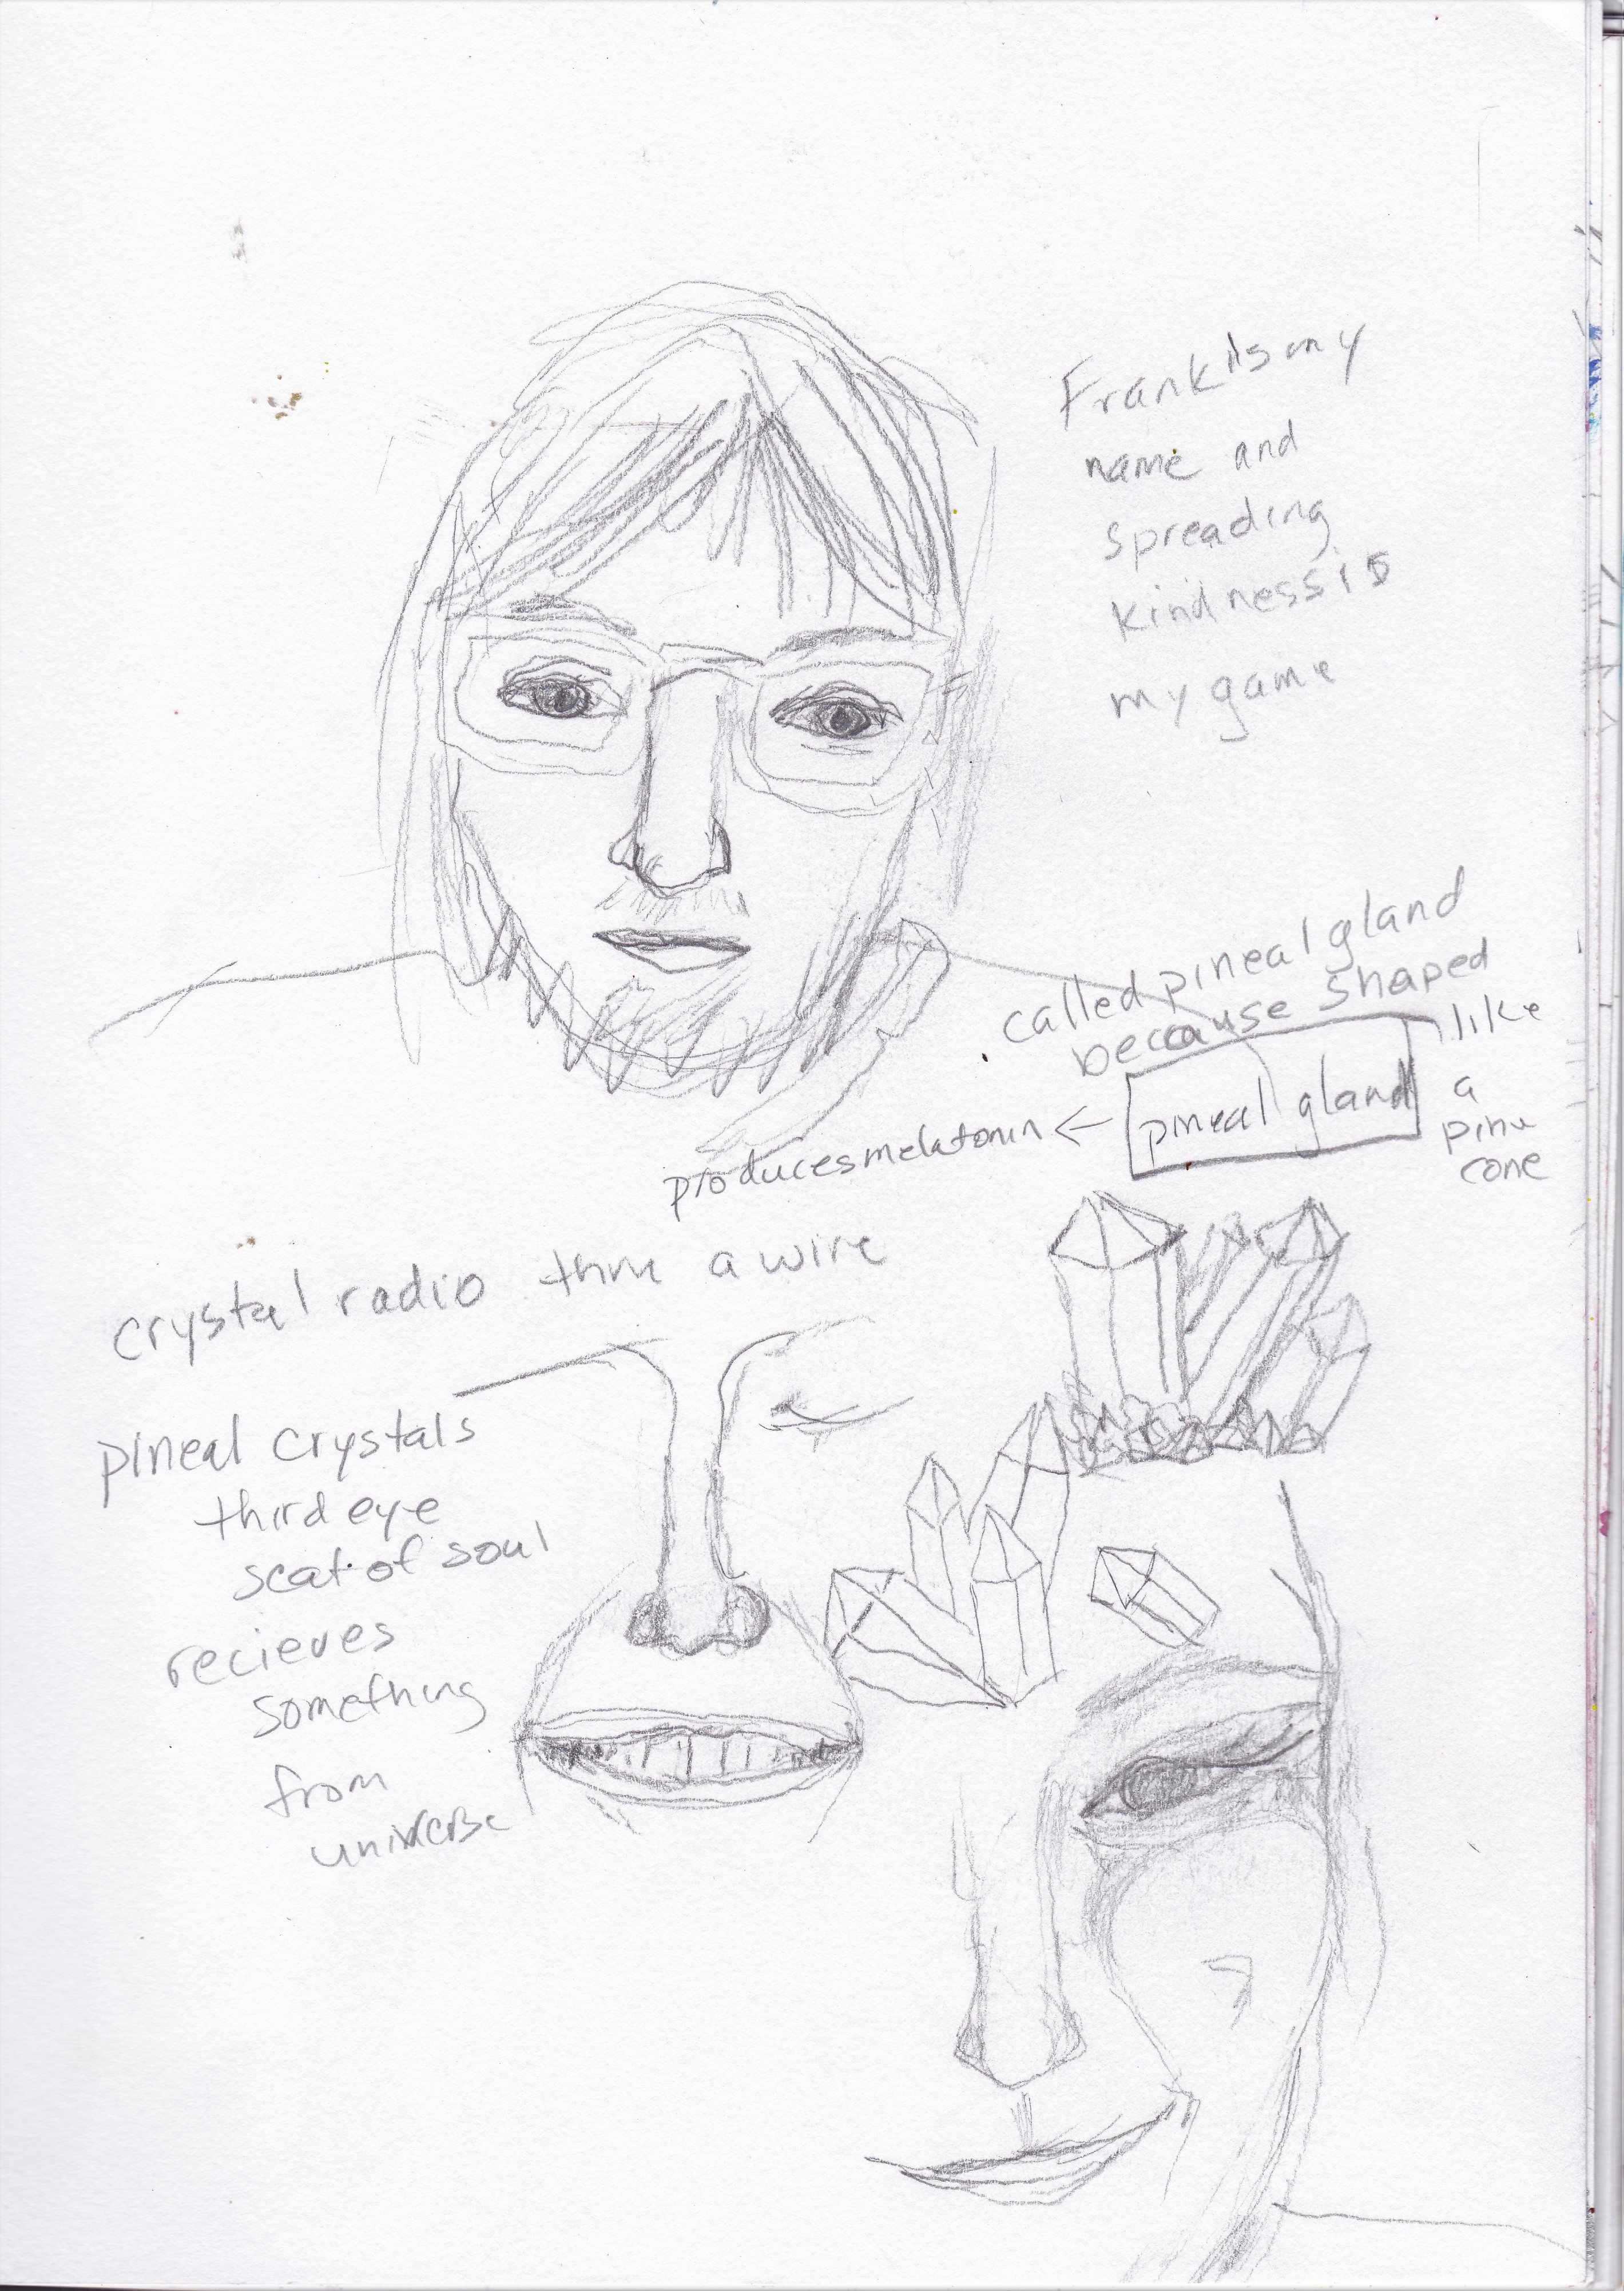 Frank is my
name and
spreading
kindness is
my game
called pineal gland
because shaped
like
a
pine
cone
pineal gland
produces melatonin ←
crystal radio thru a wire
pineal crystals
third eye
seat of soul
recieves
something
from
universe